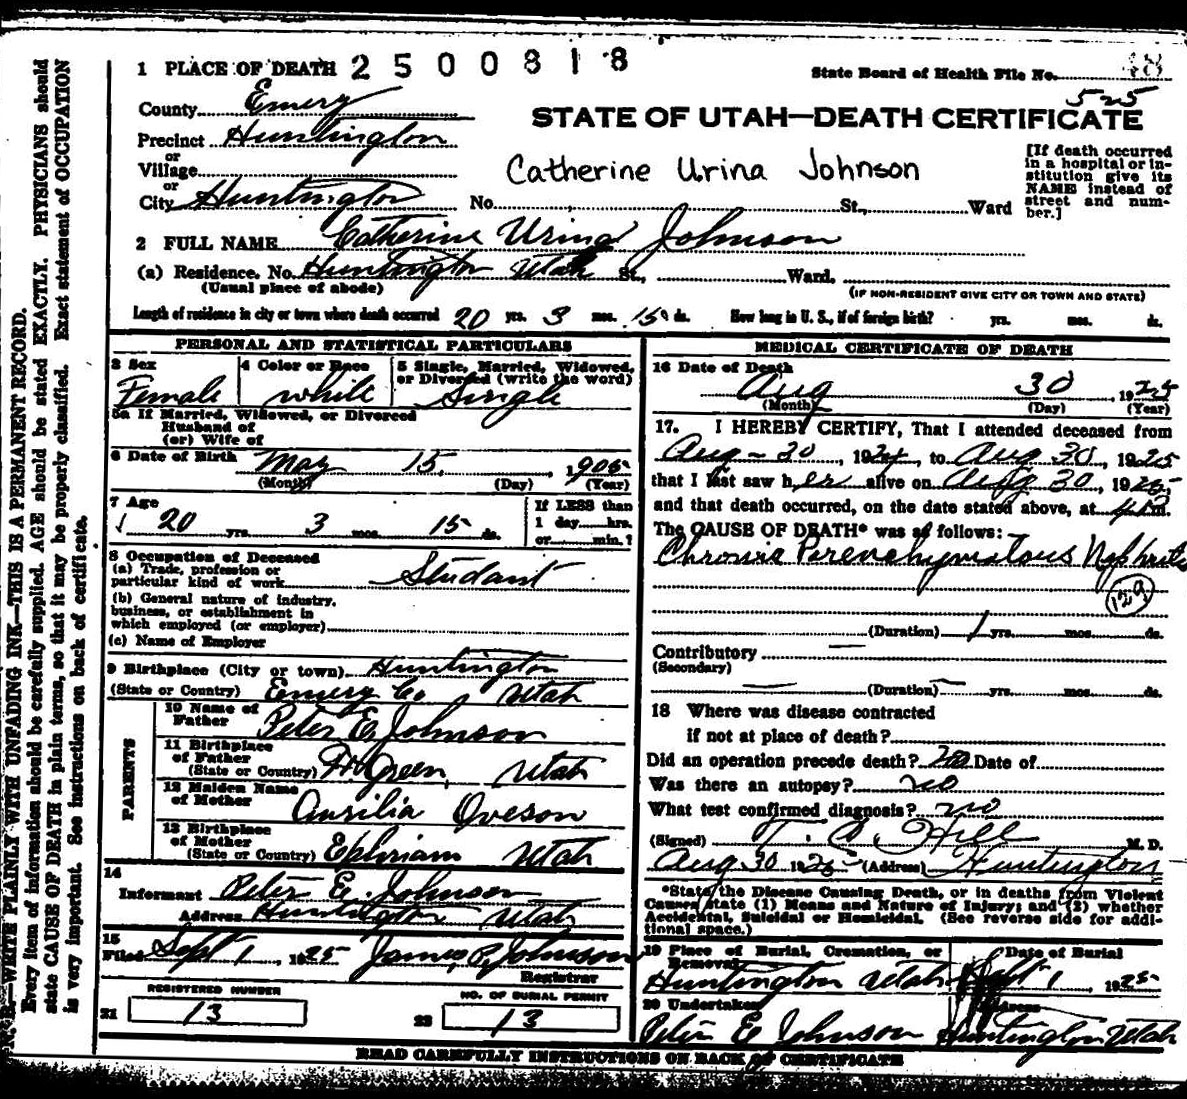 1 PLACE OF DEATH 2500818
State Board of Health File No. 48
County Emery
525
STATE OF UTAH—DEATH CERTIFICATE
Precinct Huntington
or
Village
or
City Huntington
Catherine Urina Johnson
No. St., Ward
[If death occurred
in a hospital or in-
stitution give its
NAME instead of
street and num-
ber.]
2 FULL NAME Catherine Urina Johnson
(a) Residence. No. Huntington Utah St., Ward.
(Usual place of abode)
(IF NON-RESIDENT GIVE CITY OR TOWN AND STATE)
Length of residence in city or town where death occurred 20 yrs. 3 mos. 15 ds. How long in U. S., if of foreign birth? yrs. mos. ds.
PERSONAL AND STATISTICAL PARTICULARS
3 Sex
Female
4 Color or Race
white
5 Single, Married, Widowed,
or Divorced (write the word)
Single
5a If Married, Widowed, or Divorced
Husband of
(or) Wife of
6 Date of Birth May 15, 1905
(Month) (Day) (Year)
7 Age
20 yrs. 3 mos. 15 ds.
If LESS than
1 day hrs.
or min.?
8 Occupation of Deceased
(a) Trade, profession or
particular kind of work Student
(b) General nature of industry,
business, or establishment in
which employed (or employer)
(c) Name of Employer
9 Birthplace (City or town) Huntington
(State or Country) Emery Co Utah
PARENTS
10 Name of
Father Peter E Johnson
11 Birthplace
of Father
(State or Country) Ft Green, Utah
12 Maiden Name
of Mother Aurilia Oveson
13 Birthplace
of Mother
(State or Country) Ephriam Utah
14
Informant Peter E. Johnson
Address Huntington Utah
15
Filed Sept 1, 1925 James P. Johnson
Registrar
REGISTERED NUMBER
21 13
NO. OF BURIAL PERMIT
22 13
MEDICAL CERTIFICATE OF DEATH
16 Date of Death
Aug 30, 1925
(Month) (Day) (Year)
17. I HEREBY CERTIFY, That I attended deceased from
Aug - 30, 1924, to Aug 30, 1925
that I last saw her alive on Aug 30, 1925
and that death occurred, on the date stated above, at m.
The CAUSE OF DEATH* was as follows:
Chronic Parenchymatous Nephritis
129
(Duration) 1 yrs. mos. ds.
Contributory —
(Secondary)
— (Duration) — yrs. mos. ds.
18 Where was disease contracted
if not at place of death?
Did an operation precede death? no Date of
Was there an autopsy? no
What test confirmed diagnosis? no
(Signed) T. C. Hill M. D.
Aug 30 1925 (Address) Huntington
*State the Disease Causing Death, or in deaths from Violent
Causes state (1) Means and Nature of Injury; and (2) whether
Accidental, Suicidal or Homicidal. (See reverse side for addi-
tional space.)
19 Place of Burial, Cremation, or
Removal
Huntington Utah
Date of Burial
Sept 1, 1925
20 Undertaker
Peter E Johnson
Address
Huntington Utah
READ CAREFULLY INSTRUCTIONS ON BACK OF CERTIFICATE
N. B.—WRITE PLAINLY WITH UNFADING INK—THIS IS A PERMANENT RECORD.
Every item of information should be carefully supplied. AGE should be stated EXACTLY. PHYSICIANS should
state CAUSE OF DEATH in plain terms, so that it may be properly classified. Exact statement of OCCUPATION
is very important. See instructions on back of certificate.